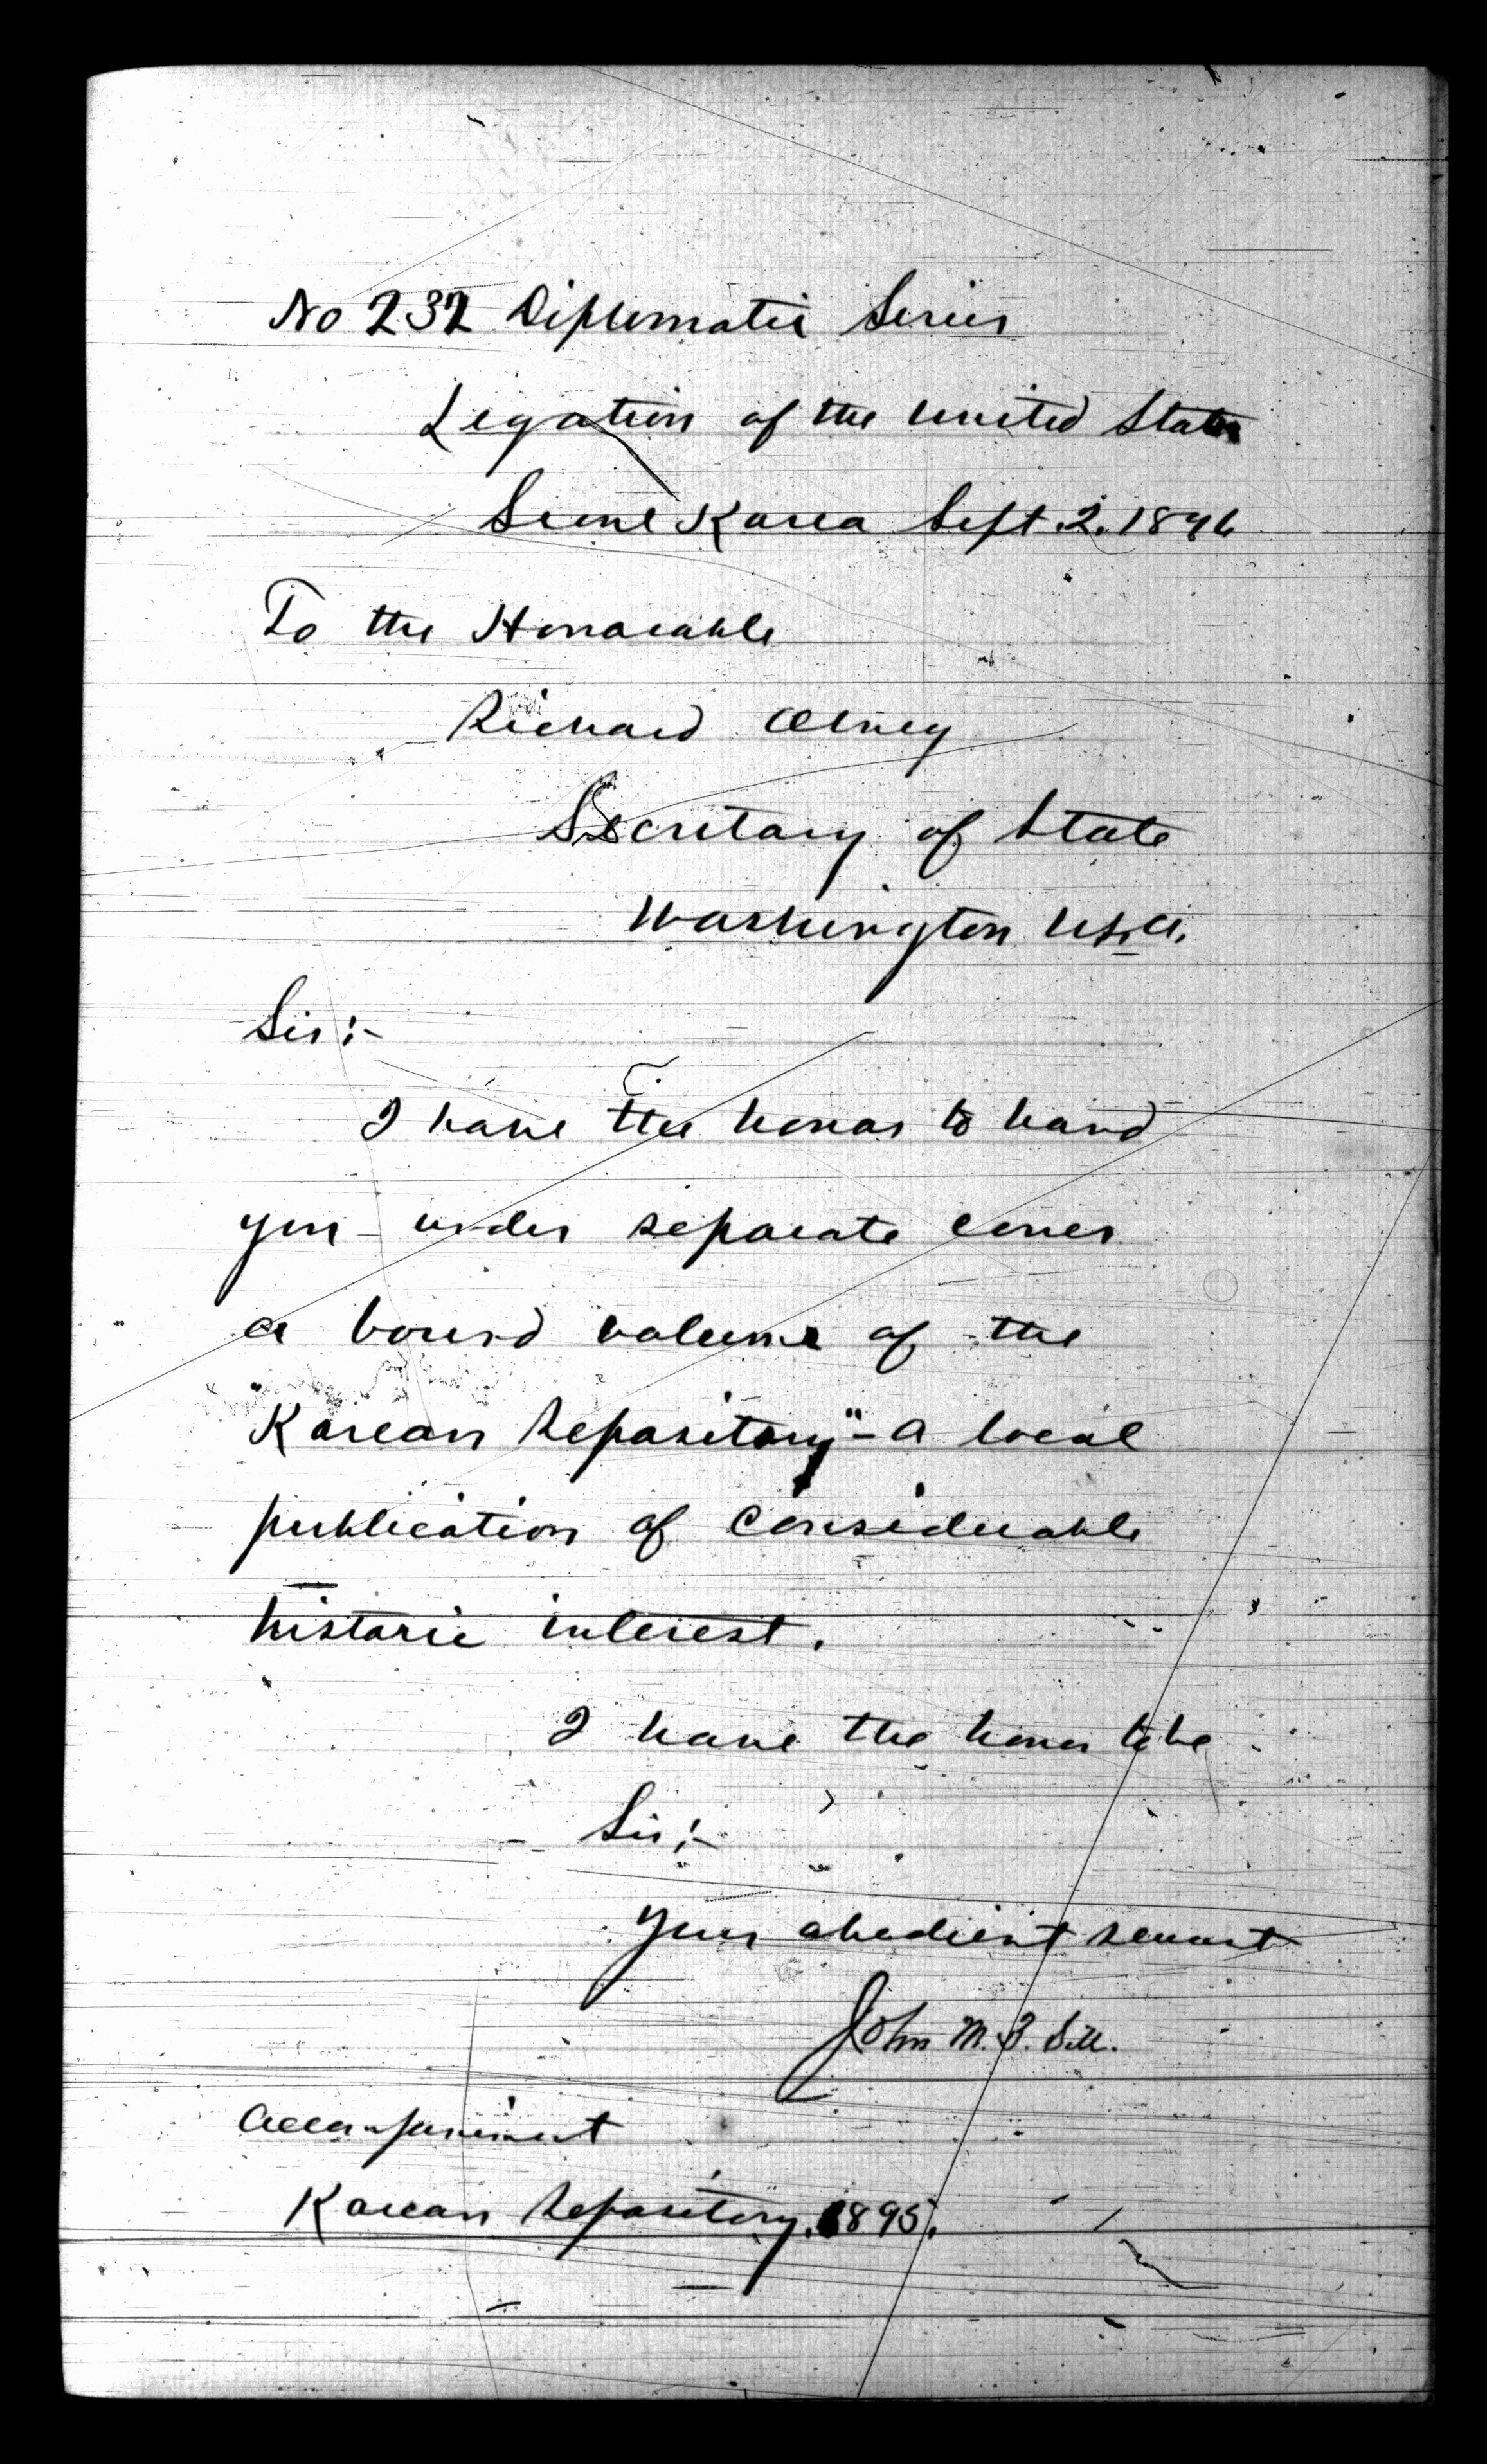 No 232 Diplomatic Series
Legation of the United States
Seoul Korea Sept. 2. 1896
To the Honorable
Richard Olney
Secretary of State
Washington U.S.A.
Sir:-
I have the honor to hand
you under separate cover
a bound volume of the
"Korean Repository" - a local
publication of considerable
historic interest.
I have the honor to be
Sir:-
Your obedient servant
John M. B. Sill.
Accompaniment
Korean Repository. 1895.